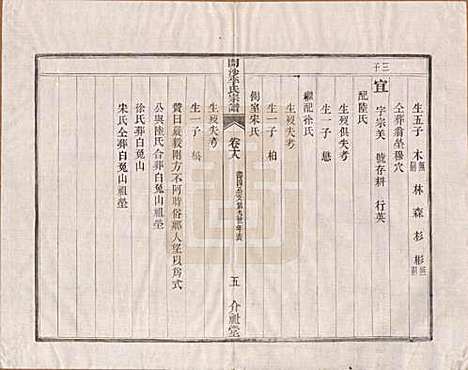 生五子 木無嗣 林 森 杉 彬無嗣
仝葬翁塋穆穴
三子 宜 字宗美 號存耕 行英
配陸氏
生歿俱失考
生一子 懸
繼配徐氏
生一子 柏
側室宋氏
開沙李氏宗譜 卷六 五 介祉堂
生歿失考
生一子
贊曰嚴毅剛方不阿時俗鄉人望以為式
公與陸氏合葬白兎山祖塋
徐氏葬白兎山祖塋
宋氏仝葬白兎山祖塋